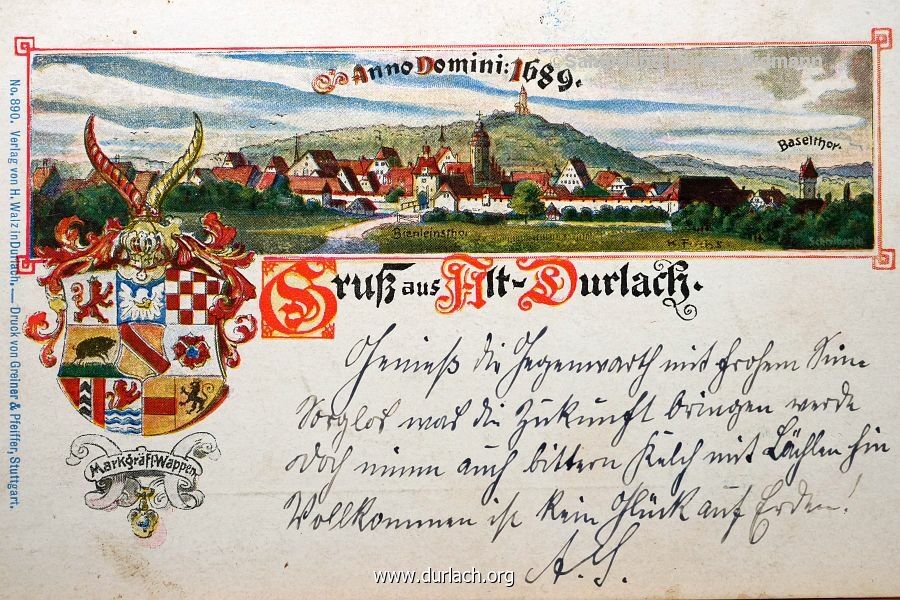 Anno Domini: 1689.
Baselthor.
Bienleinsthor
K Fuchs
No. 890. Verlag von H. Walz in Durlach. — Druck von Greiner & Pfeiffer, Stuttgart.
Gruß aus Alt-Durlach.
Genieß die Gegenwarth mit frohem Sinn
Sorglos was die Zukunft bringen werde
doch nimm auch bittern Kelch mit Lächlen hin
Vollkommen ist kein Glück auf Erden!
A. G.
Markgräfl. Wappen
www.durlach.org